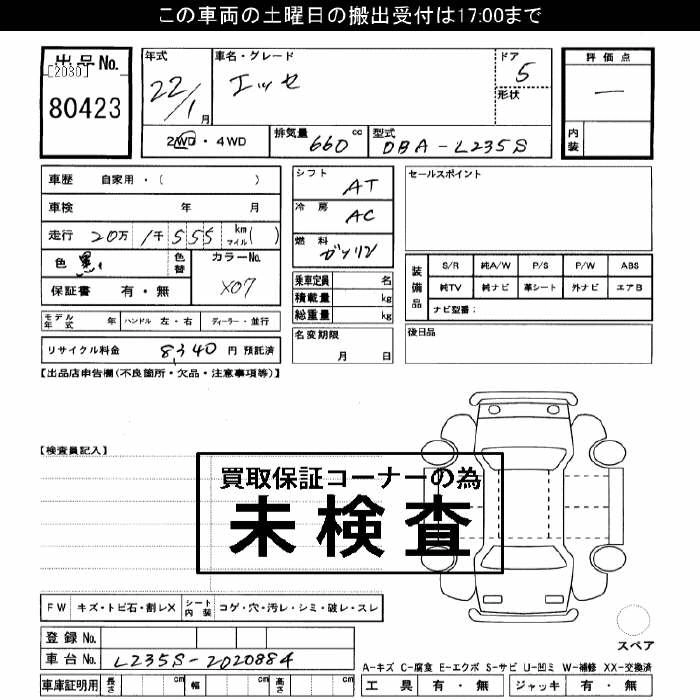 この車両の土曜日の搬出受付は17:00まで
出品No.
[2030]
80423
年式
22/1月
車名・グレード
エッセ
ドア
5
形状
評価点
―
内装
2WD・4WD
排気量 660 cc
型式 DBA-L235S
車歴 自家用・( )
車検 年 月
走行 20万 1千 555 km マイル( )
色 黒
色替
カラーNo.
X07
保証書 有・無
シフト
AT
冷房
AC
燃料
ガソリン
乗車定員 名
積載量 kg
総重量 kg
セールスポイント
装備品
S/R 純A/W P/S P/W ABS
純TV 純ナビ 革シート 外ナビ エアB
ナビ型番:
モデル年式 年 ハンドル 左・右 ディーラー・並行
名変期限
月 日
後日品
リサイクル料金 8,340 円 預託済
【出品店申告欄(不良箇所・欠品・注意事項等)】
【検査員記入】
買取保証コーナーの為
未検査
FW キズ・トビ石・割レX シート内装 コゲ・穴・汚レ・シミ・破レ・スレ
スペア
登録No.
車台No. L235S-2020884
A-キズ C-腐食 E-エクボ S-サビ U-凹ミ W-補修 XX-交換済
車庫証明用 長さ cm 幅 cm 高さ cm
工具 有・無 ジャッキ 有・無